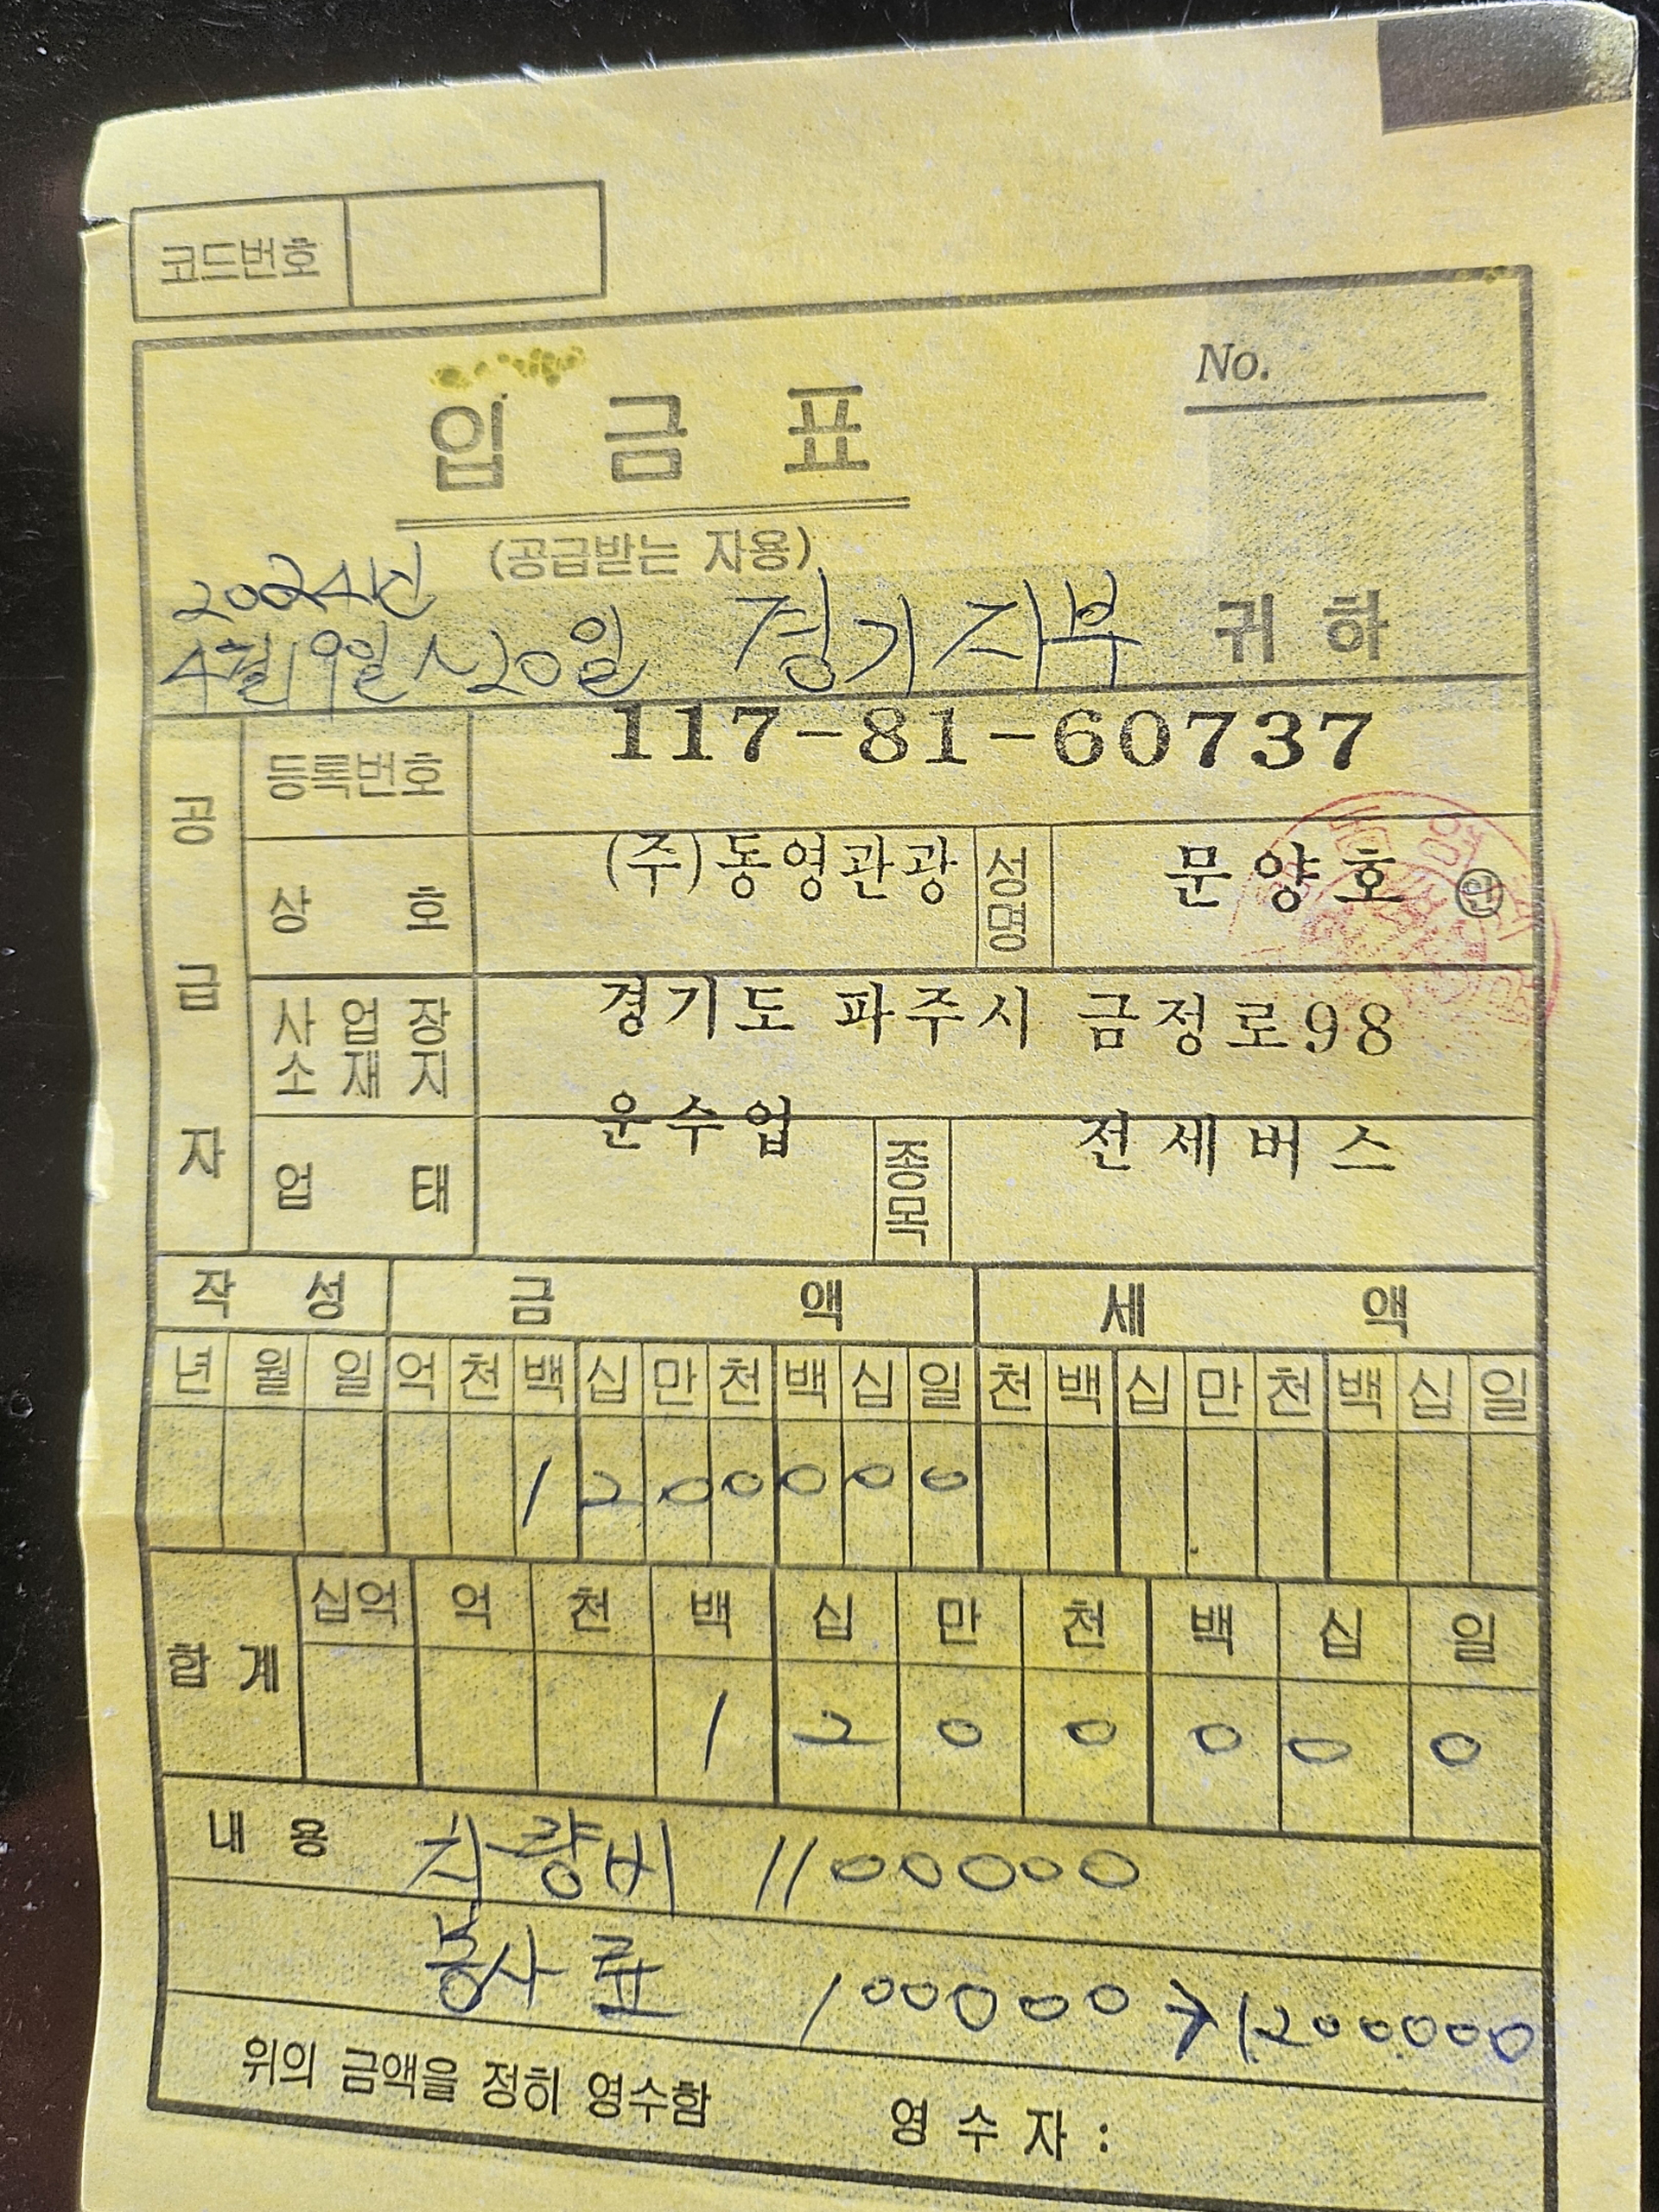 코드번호
No.
입 금 표
(공급받는 자용)
2024년
4월19일~20일 경기지부 귀 하
공급자
등록번호 117-81-60737
상 호 (주)동영관광 성명 문양호 ㊞
사 업 장 소 재 지 경기도 파주시 금정로98
업 태 운수업 종목 전세버스
작 성 금 액 세 액
년 월 일 억 천 백 십 만 천 백 십 일 천 백 십 만 천 백 십 일
1 2 0 0 0 0 0
합 계 십억 억 천 백 십 만 천 백 십 일
1 2 0 0 0 0 0
내 용 차량비 1100000
봉사료 100000 → 1200000
위의 금액을 정히 영수함 영 수 자 :